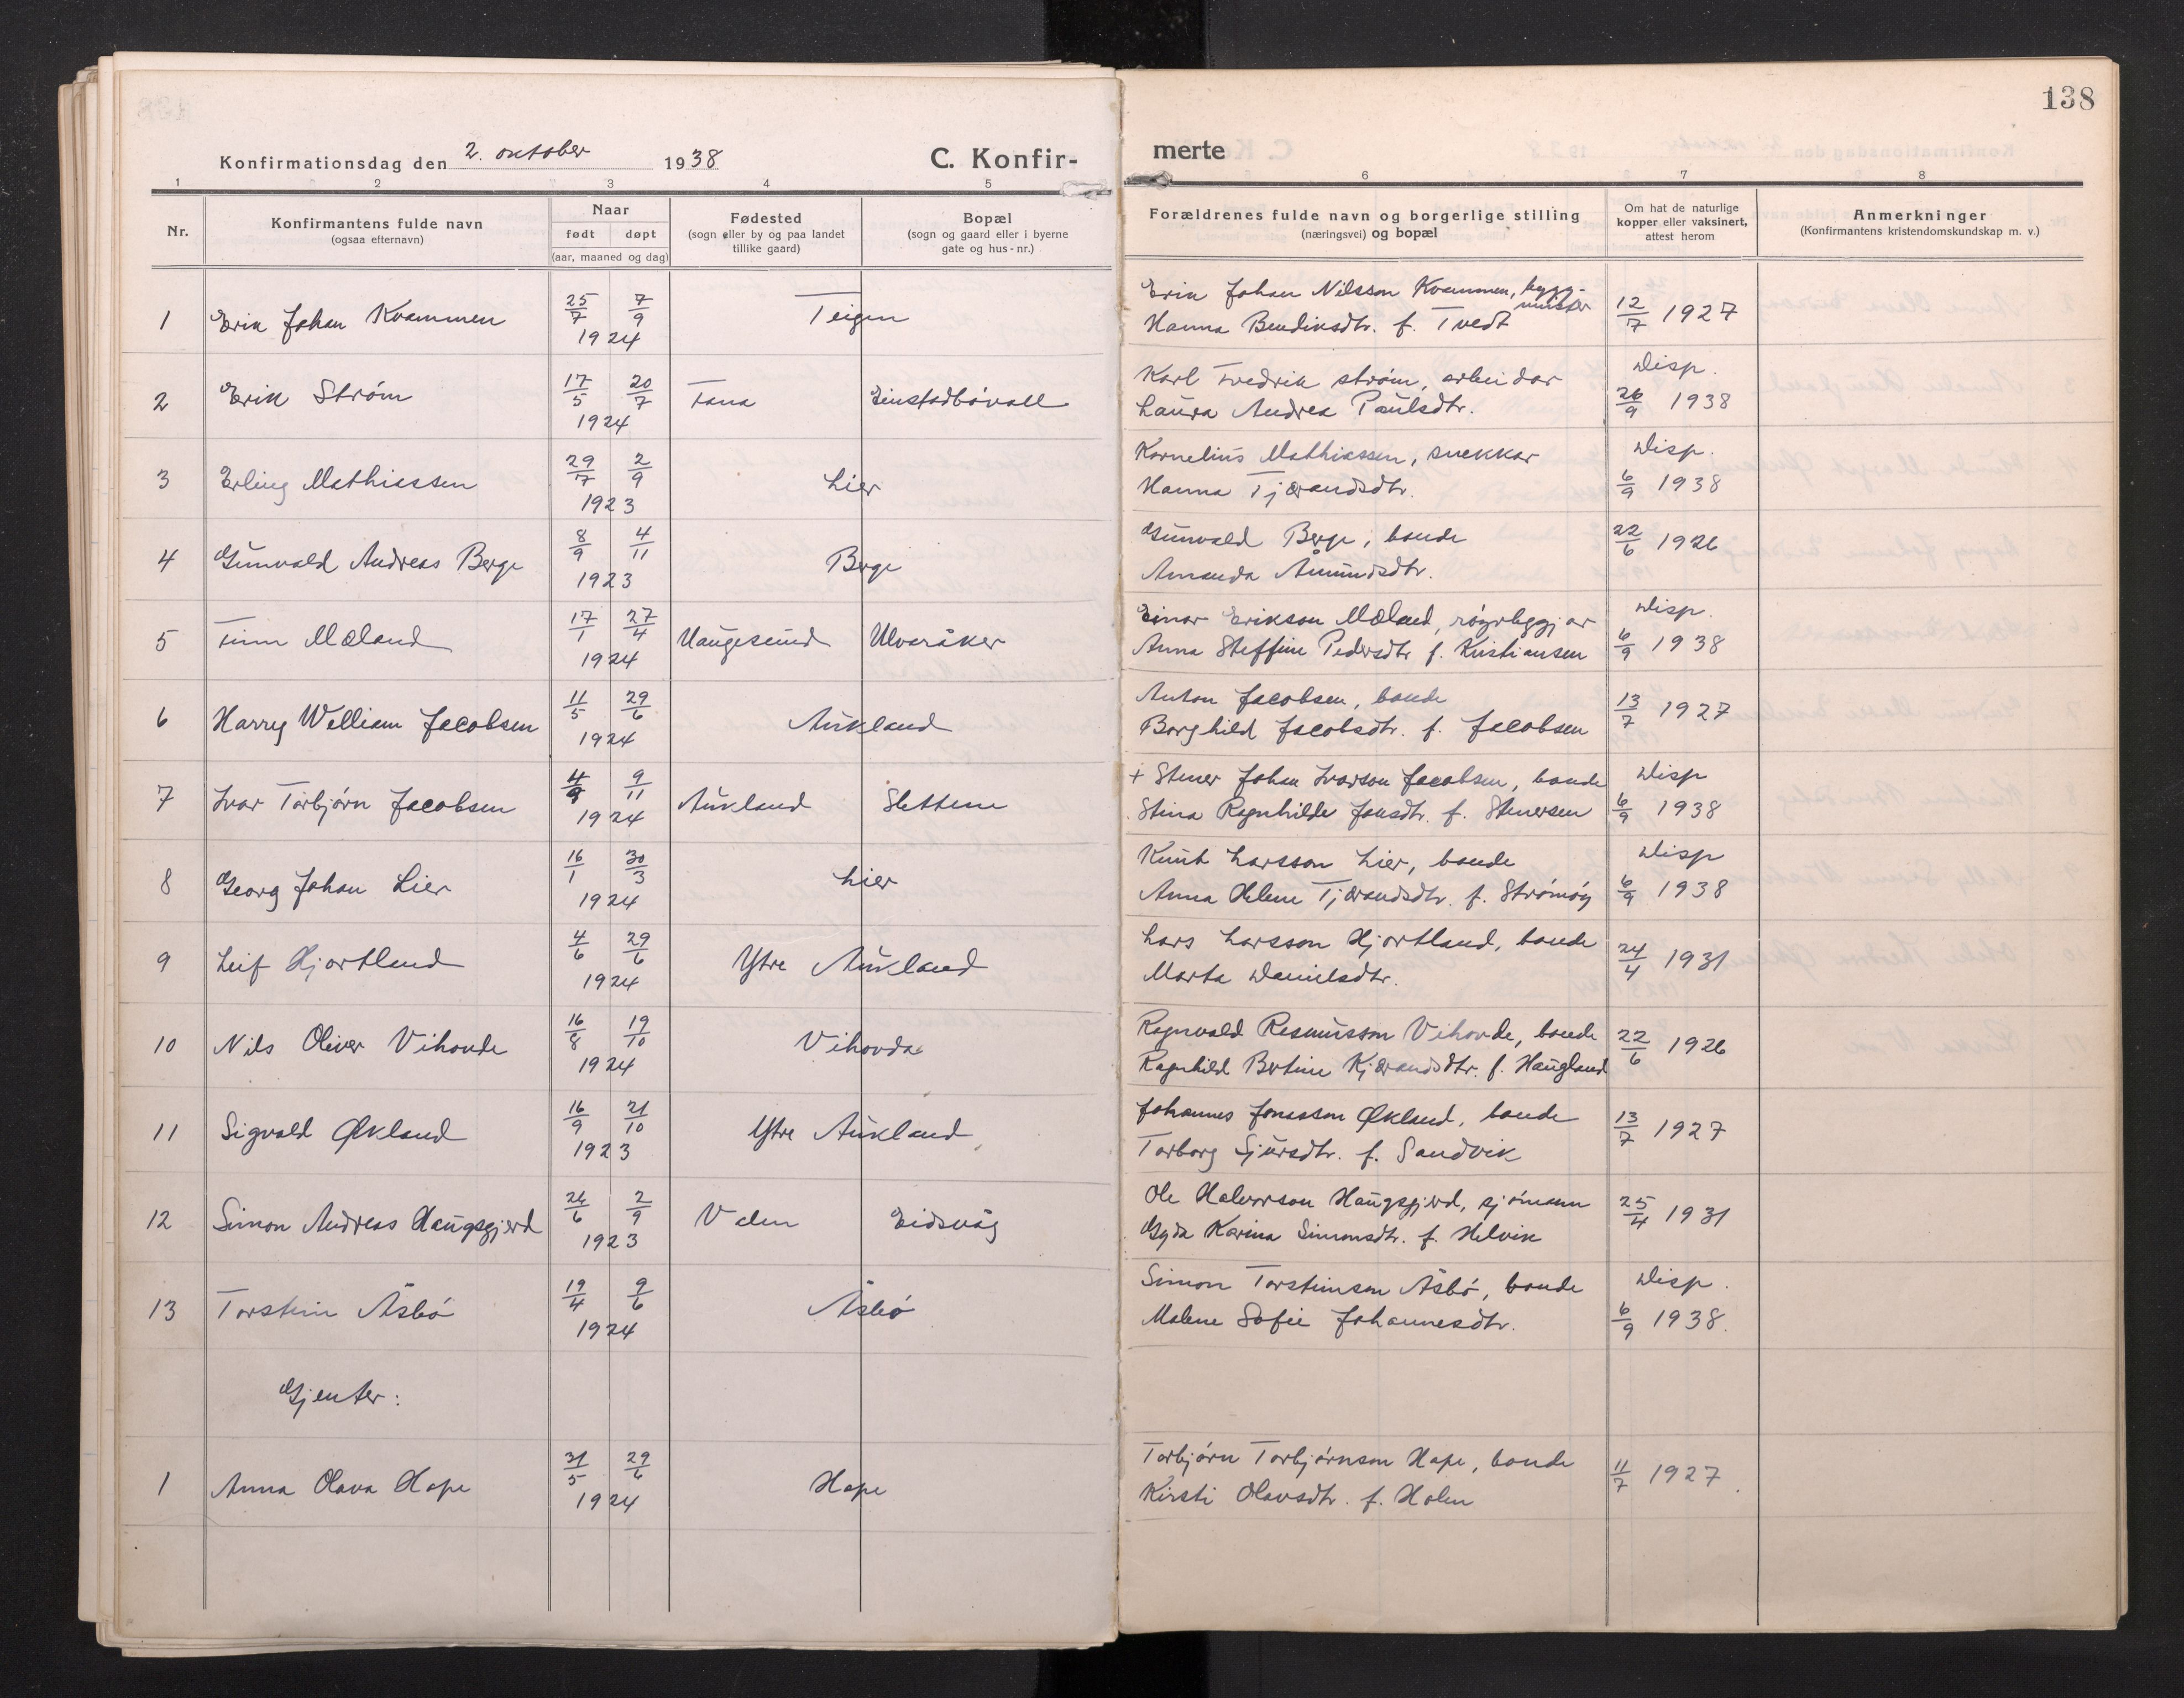 138
Konfirmationsdag den 2. oktober 1938 C. Konfir-
merte
1 2 3 4 5 6 7 8
Nr.
Konfirmantens fulde navn
(ogsaa efternavn)
Naar
født døpt
(aar, maaned og dag)
Fødested
(sogn eller by og paa landet
tillike gaard)
Bopæl
(sogn og gaard eller i byerne
gate og hus-nr.)
Forældrenes fulde navn og borgerlige stilling
(næringsvei) og bopæl
Om hat de naturlige
kopper eller vaksinert,
attest herom
Anmerkninger
(Konfirmantens kristendomskundskap m. v.)
1 Erik Johan Kvammen 25/7 7/9 1924 Teigen
Erik Johan Nilsson Kvammen, bygg-
meister
Hanna Bendiksdtr. f. Tvedt
12/7 1927
2 Erik Strøm 17/5 20/7 1924 Tana Einstadbövoll
Karl Fredrik Strøm, arbeidar
Laura Andrea Paulsdtr.
Disp.
26/9 1938
3 Erling Mathiassen 29/7 2/9 1923 Lier
Kornelius Mathiassen, snekkar
Hanna Tjærandsdtr.
Disp.
6/9 1938
4 Gunvald Andreas Berge 8/9 4/11 1923 Berge
Gunvald Berge, bonde
Amanda Åmundsdtr.
22/6 1926
5 Finn Mæland 17/1 27/4 1924 Haugesund Ulveråker
Einar Erikson Mæland, røyrleggjar
Anna Steffine Pedersdtr f. Kristiansen
Disp.
6/9 1938
6 Harry William Jacobsen 11/5 29/6 1924 Aukland
Anton Jacobsen, bonde
Borghild Jacobsdtr. f. Jacobsen
13/7 1927
7 Ivar Torbjørn Jacobsen 4/9 9/11 1924 Aukland Slettene
+ Stener Johan Ivarson Jacobsen, bonde
Stina Ragnhilde Jonsdtr. f. Stenersen
Disp
6/9 1938
8 Georg Johan Lier 16/1 30/3 1924 Lier
Knut Larsson Lier, bonde
Anna Helene Tjærandsdtr. f. Strømøy
Disp
6/9 1938
9 Leif Hjortland 4/6 29/6 1924 Ytre Aukland
Lars Larsson Hjortland, bonde
Marta Danielsdtr.
24/4 1931
10 Nils Oliver Vihovde 16/8 19/10 1924 Vihovda
Ragnvald Rasmusson Vihovde, bonde
Ragnhild Bertine Kjærandsdtr. f. Haugland
22/6 1926
11 Sigvald Økland 16/9 21/10 1923 Ytre Aukland
Johannes Jonasson Økland, bonde
Torborg Sjursdtr. f. Sandvik
13/7 1927
12 Simon Andreas Haugsgjerd 26/6 2/9 1923 Valen Eidsvåg
Ole Halvorson Haugsgjerd, sjømann
Gyda Karina Simonsdtr. f. Helvik
25/4 1931
13 Torstein Åsbö 19/4 9/6 1924 Åsbö
Simon Torsteinsen Åsbö, bonde
Malene Sofie Johannesdtr.
Disp.
6/9 1938.
Gjenter:
1 Anna Olava Hope 31/5 29/6 1924 Hope
Torbjørn Torbjørnson Hope, bonde
Kirsti Olavsdtr. f. Holen
11/7 1927.